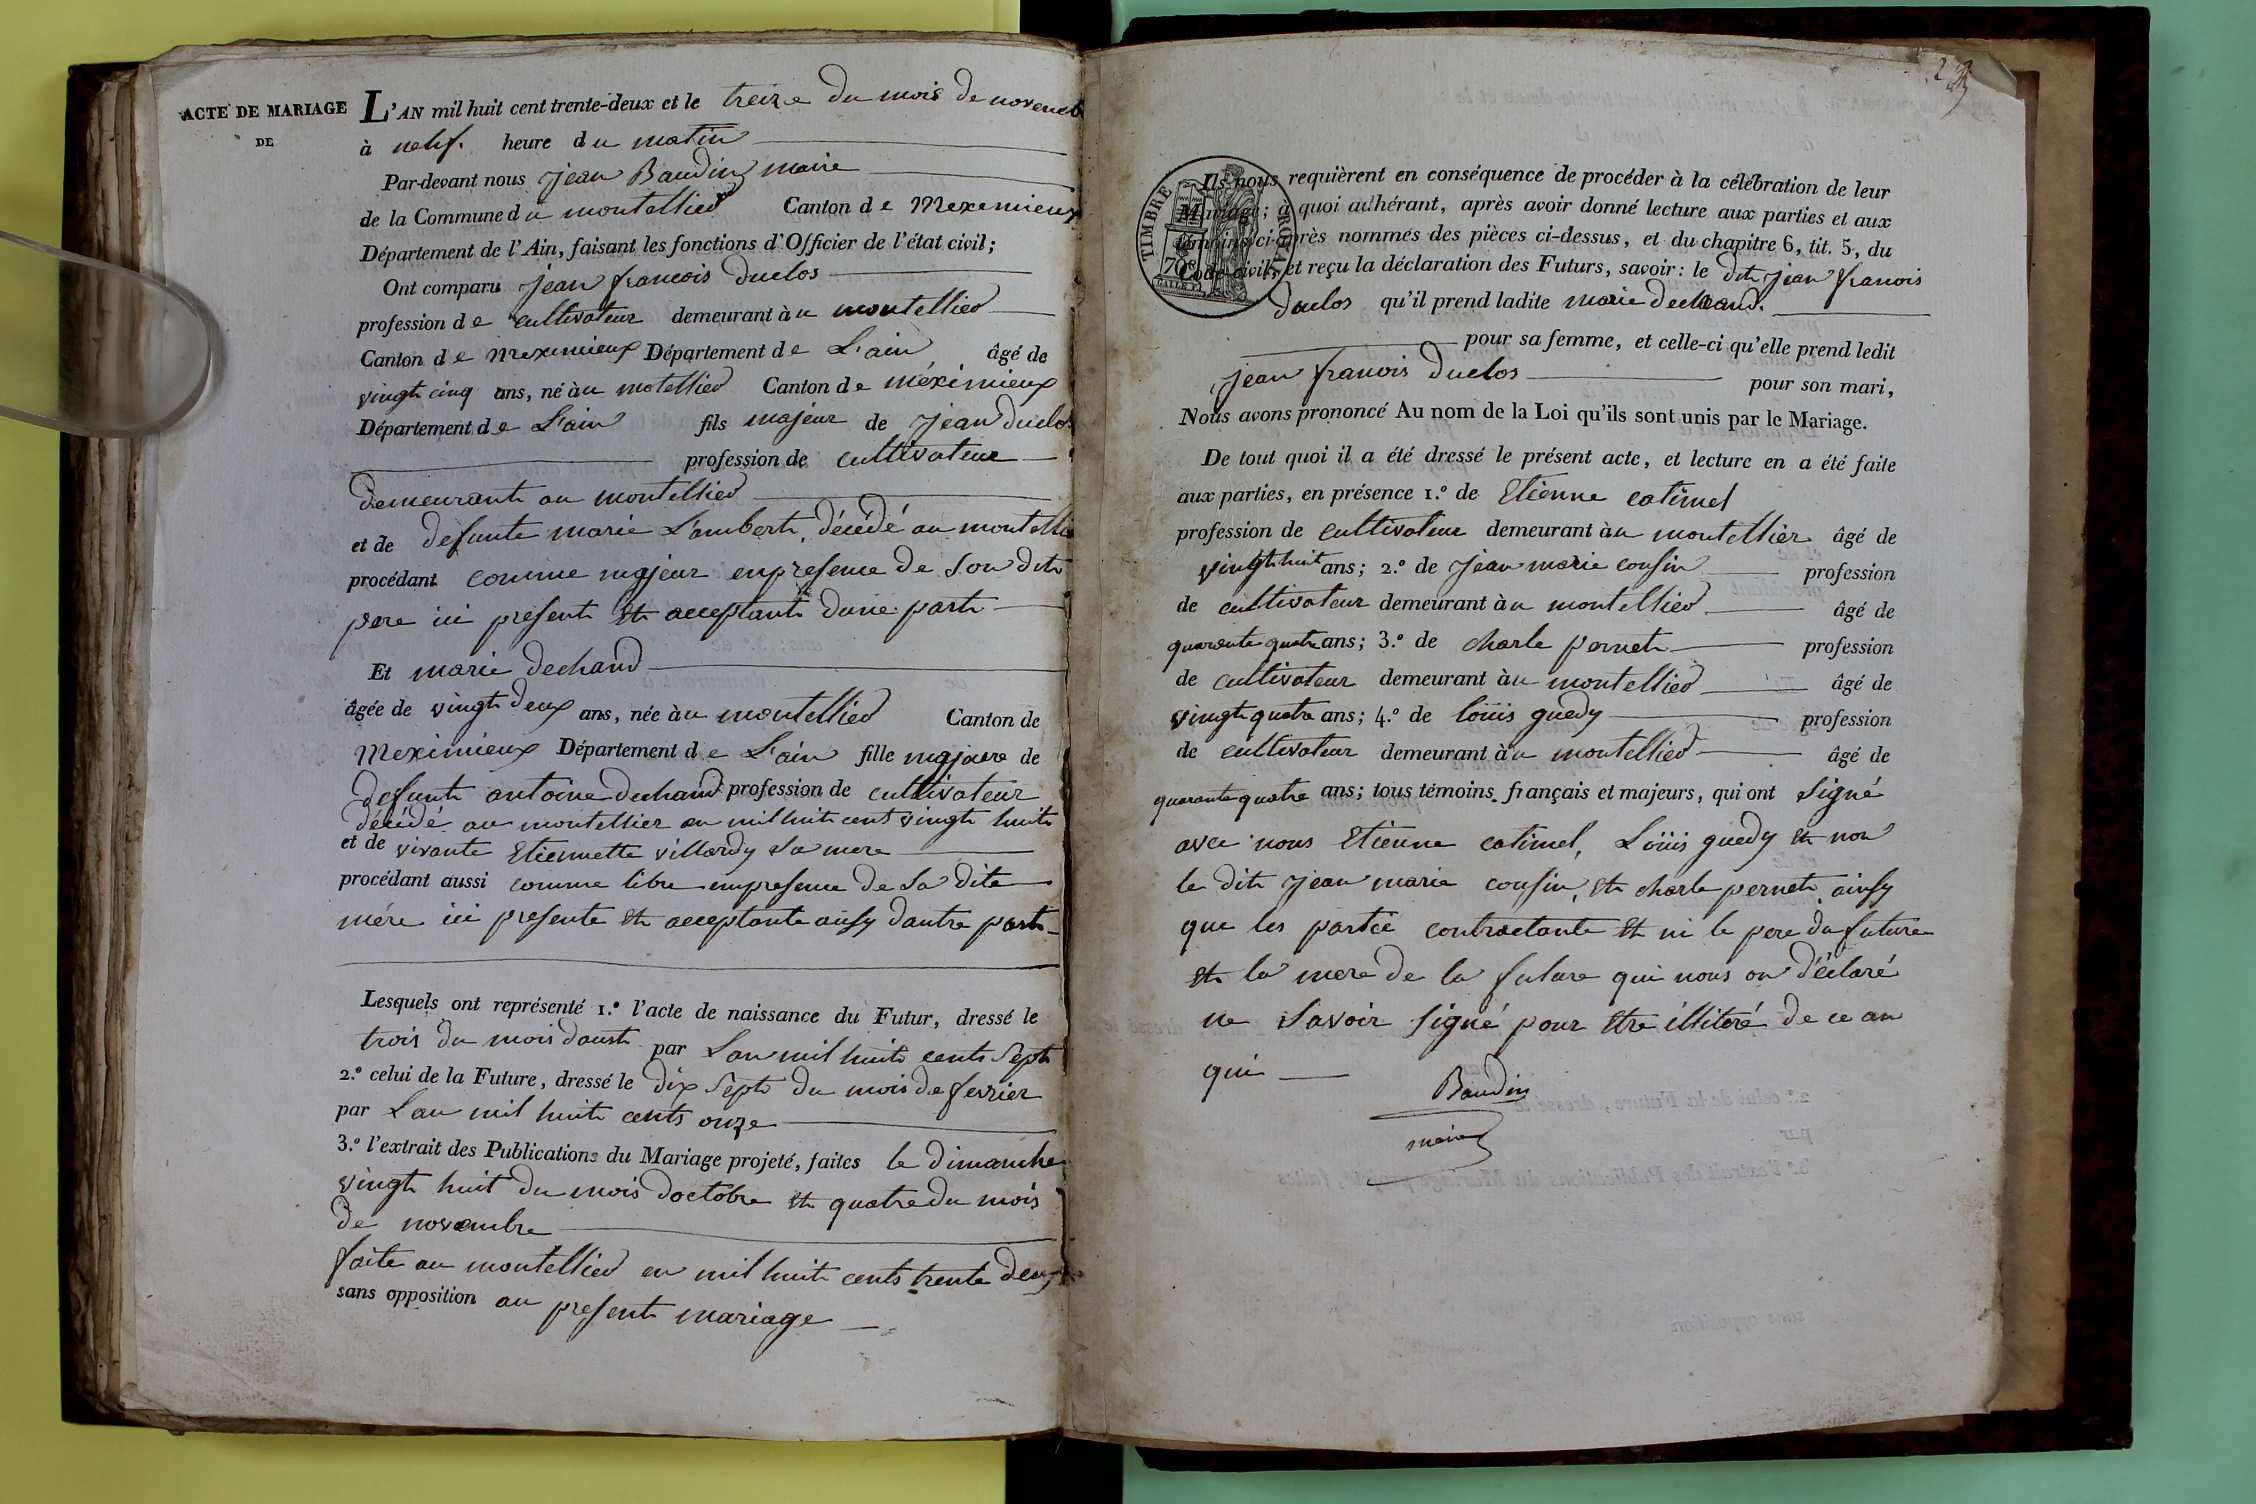 ACTE DE MARIAGE
DE
L'AN mil huit cent trente-deux et le treize du mois de novemb
à neuf. heure du matin
Par-devant nous jean Baudin maire
de la Commune du montellier Canton de Meximieux
Département de l'Ain, faisant les fonctions d'Officier de l'état civil;
Ont comparu jean francois duclos
profession de cultivateur demeurant àu montellier
Canton de meximieux Département de L'ain âgé de
vingt cinq ans, né àu motellier Canton de méximieux
Département de L'ain fils majeur de jean duclos
profession de cultivateur
demeurant au montellier
et de defunte marie Lambert, décédé au montellier
procédant comme majeur enpresence de son dit
pere ici present et acceptant dune part
Et marie dechand
âgée de vingt deux ans, née àu montellier Canton de
Meximieux Département de L'ain fille majeure de
defunt antoine dechand profession de cultivateur
décédé au montellier en mil huit cent vingt huit
et de vivante Etiennette villardy sa mere
procédant aussi comme libre enpresence de sa dite
mére ici presente et acceptante ainsy dautre part
Lesquels ont représenté 1.º l'acte de naissance du Futur, dressé le
trois du mois daoust par Lan mil huit cents sept
2.º celui de la Future, dressé le dix sept du mois de fevrier
par Lan mil huit cents onze
3.º l'extrait des Publications du Mariage projeté, faites le dimanche
vingt huit du mois doctobre et quatre du mois
de novembre
faite au montellier en mil huit cents trente deux
sans opposition au present mariage
TIMBRE ROYAL
70c
Ils nous requièrent en conséquence de procéder à la célébration de leur
Mariage; à quoi adhérant, après avoir donné lecture aux parties et aux
témoins ci-après nommés des pièces ci-dessus, et du chapitre 6, tit. 5, du
Code civil, et reçu la déclaration des Futurs, savoir: le dit jean francois
duclos qu'il prend ladite marie dechand.
pour sa femme, et celle-ci qu'elle prend ledit
jean francois duclos pour son mari,
Nous avons prononcé Au nom de la Loi qu'ils sont unis par le Mariage.
De tout quoi il a été dressé le présent acte, et lecture en a été faite
aux parties, en présence 1.º de Etienne catimel
profession de cultivateur demeurant àu montellier âgé de
vingt huit ans; 2.º de jean marie cousin profession
de cultivateur demeurant àu montellier âgé de
quarante quatre ans; 3.º de charle pernet profession
de cultivateur demeurant àu montellier âgé de
vingt quatre ans; 4.º de loüis guedy profession
de cultivateur demeurant àu montellier âgé de
quarante quatre ans; tous témoins français et majeurs, qui ont signé
avec nous Etienne catimel, Loüis guedy et non
le dit jean marie cousin, et charle pernet ainsy
que les partie contractante et ni le pere du future
et la mere de la future qui nous on déclaré
ne savoir signé pour etre illiteré de ce an
qui
Baudin
maire